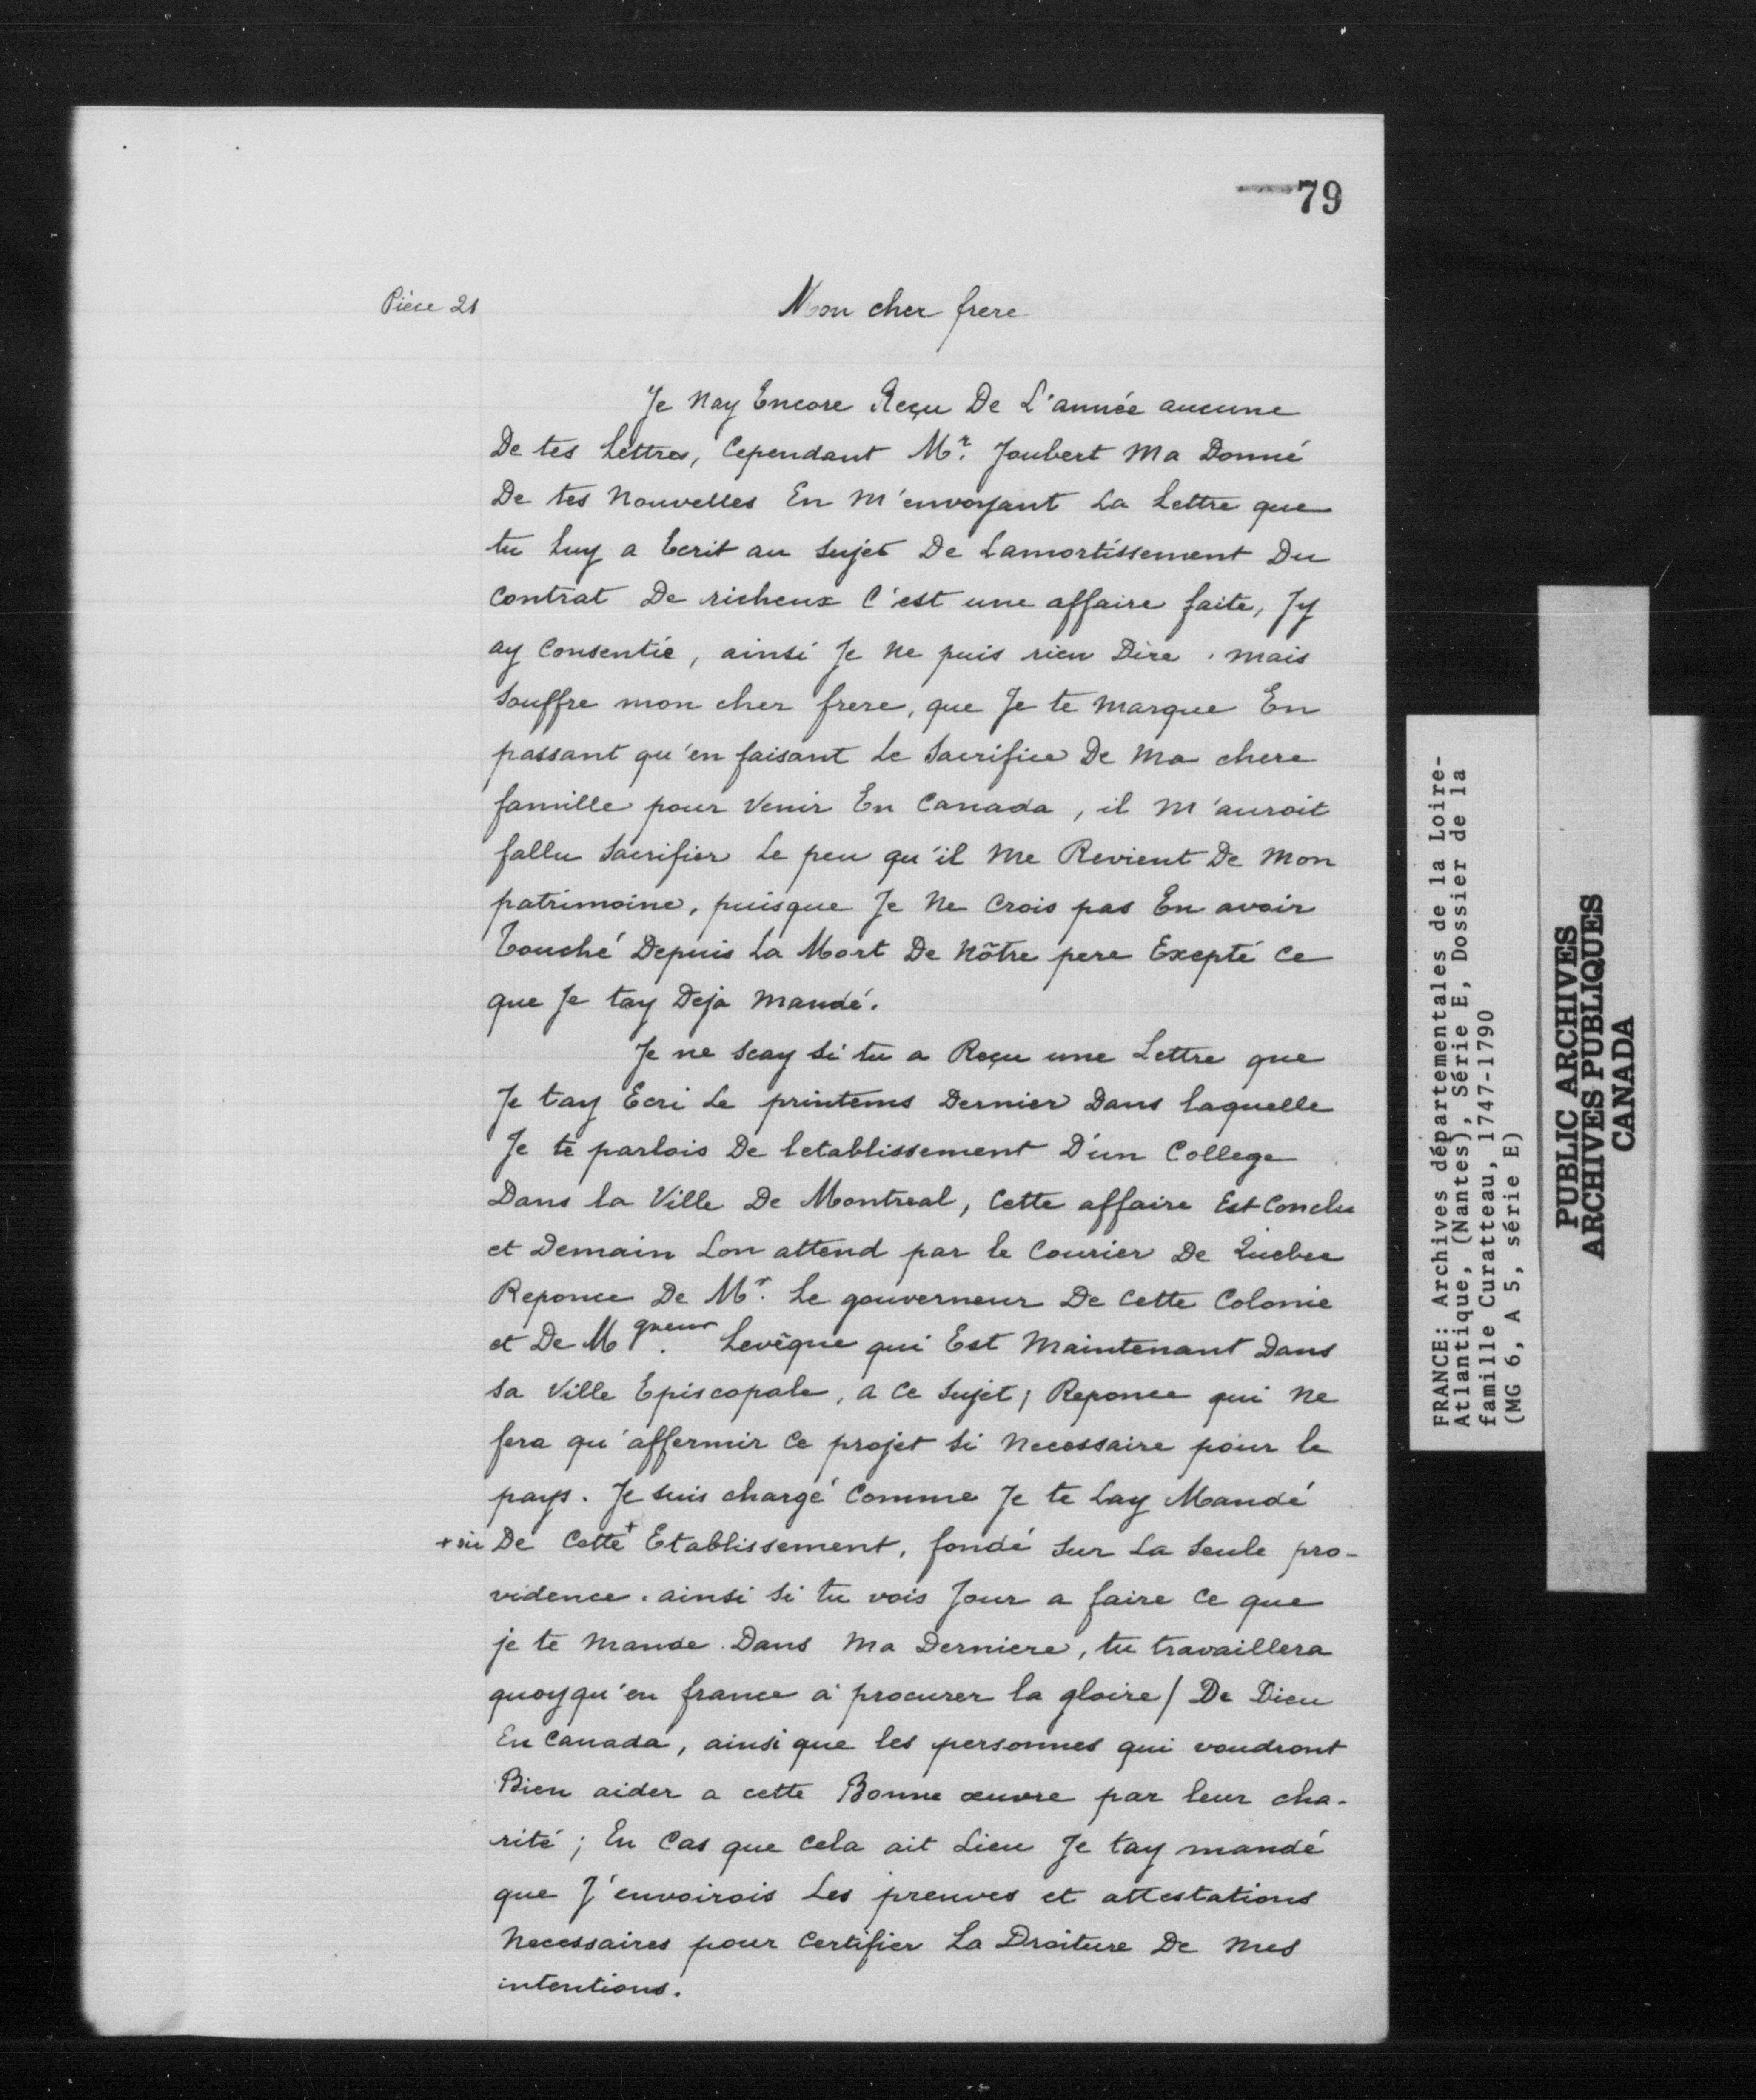 79
Pièce 21
Mon cher frere
Je Nay Encore Reçu De L'année aucune
De tes Lettres, Cependant Mr. Joubert Ma Donné
De tes Nouvelles En M'envoyant La Lettre que
tu Luy a Ecrit au Sujet De Lamortissement Du
Contrat De richeux C'est une affaire faite, Jy
ay Consentie, ainsi Je Ne puis rien Dire. Mais
Souffre mon cher frere, que Je te Marque En
passant qu'en faisant Le Sacrifice De Ma chere
famille pour Venir En Canada, il M'auroit
fallu Sacrifier Le peu qu'il Me Revient De Mon
patrimoine, puisque Je Ne Crois pas En avoir
Touché Depuis La Mort De Nôtre pere Exepté Ce
que Je tay Deja Mandé.
Je ne Scay Si tu a Reçu une Lettre que
Je tay Ecri Le printems Dernier Dans laquelle
Je te parlois De letablissement D'un College
Dans la Ville De Montreal, Cette affaire Est Conclu
et Demain Lon attend par le Courier De Quebec
Reponce De Mr. Le gouverneur De Cette Colonie
et De Mgneur. Levêque qui Est Maintenant Dans
Sa Ville Episcopale, a Ce Sujet; Reponce qui Ne
fera qu'affermir Ce projet Si Necessaire pour le
pays. Je Suis chargé Comme Je te Lay Mandé
+ sic De Cette + Etablissement, fondé Sur La Seule pro-
vidence. ainsi Si tu vois Jour a faire Ce que
je te Mande Dans Ma Derniere, tu travaillera
quoyqu'en france à procurer la gloire/ De Dieu
En Canada, ainsi que les personnes qui voudront
Bien aider a cette Bonne œuvre par leur cha-
rité; En Cas que Cela ait Lieu Je tay mandé
que J'envoirois Les preuves et attestations
Necessaires pour Certifier La Droiture De Mes
intentions.
FRANCE: Archives départementales de la Loire-
Atlantique, (Nantes), Série E, Dossier de la
famille Curatteau, 1747-1790
(MG 6, A 5, série E)
PUBLIC ARCHIVES
ARCHIVES PUBLIQUES
CANADA